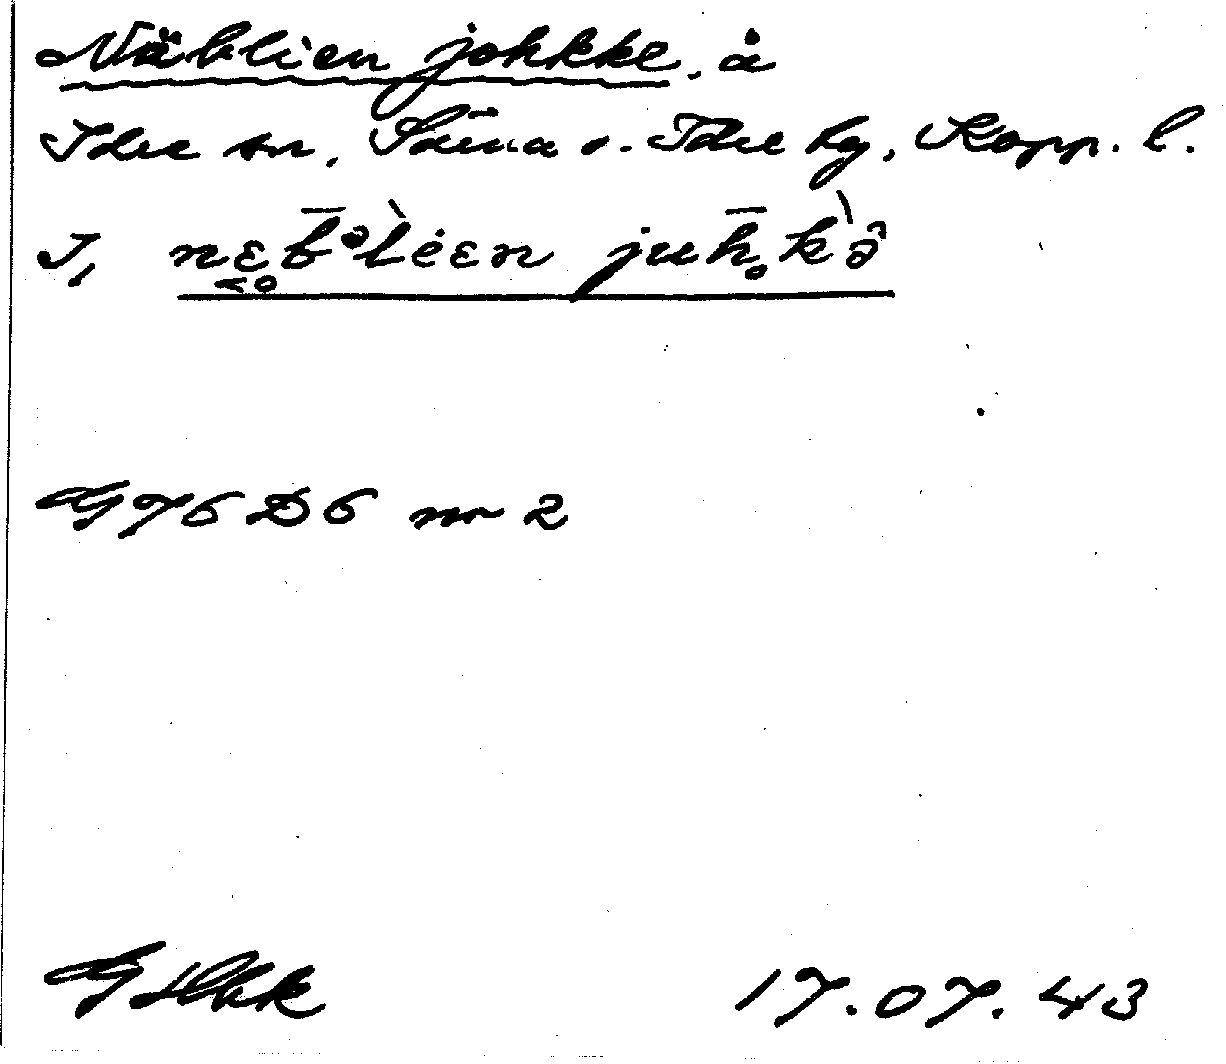 Näblien johkke, å
Idre sn, Särna o. Idre hg, Kopp. l.
I, nɛb̄ᵊlèen juh̄kə̂
G 76 D 6 nr 2
17.07.43